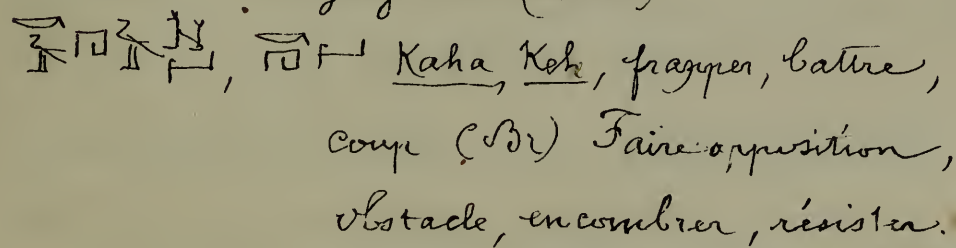 Kaha, Keh, frapper, battre,
coup (Br) Faire opposition,
obstacle, encombrer, résister.